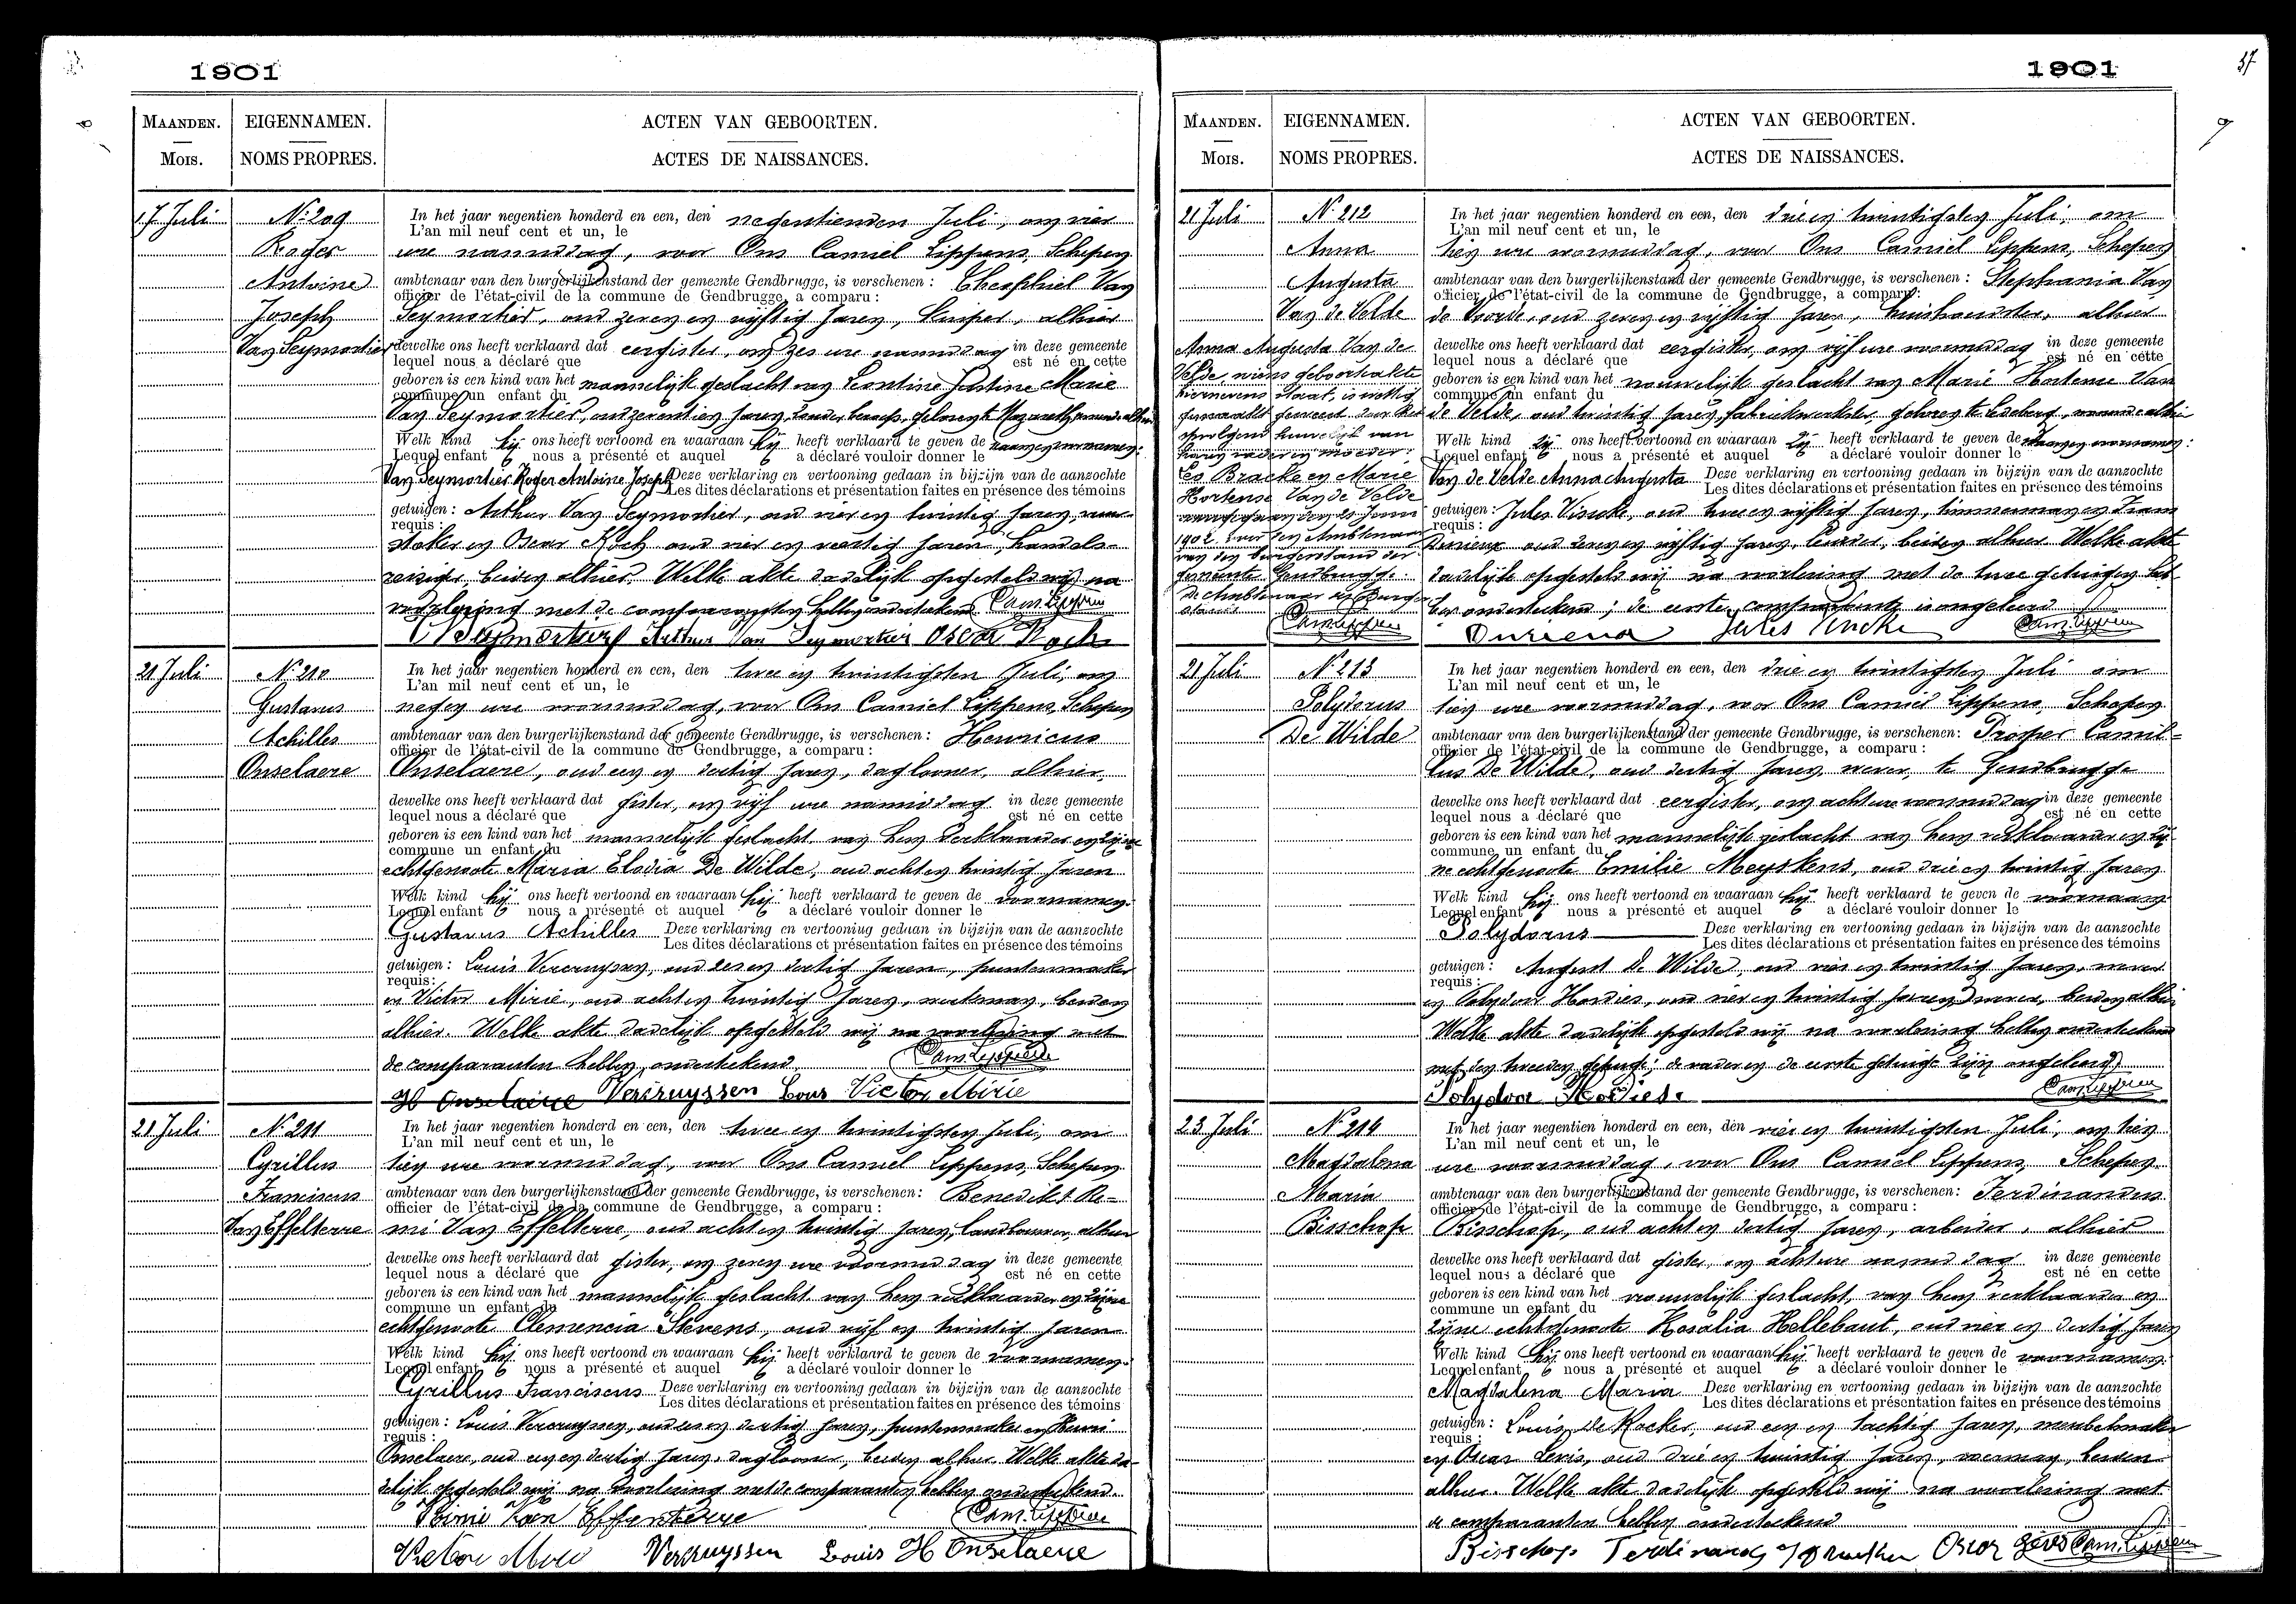 1901
MAANDEN. EIGENNAMEN. ACTEN VAN GEBOORTEN.
MOIS. NOMS PROPRES. ACTES DE NAISSANCES.
17 Juli
N.º 209
Roger
Antoine
Joseph
Van Seymortier
In het jaar negentien honderd en een, den negentienden Juli, om vier
L'an mil neuf cent et un, le
ure namiddag, voor Ons Camiel Lippens, Schepen
ambtenaar van den burgerlijkenstand der gemeente Gendbrugge, is verschenen : Theophiel Van
officier de l'état-civil de la commune de Gendbrugge, a comparu :
Seymortier, oud zeven en vijftig jaren, kuiper, alhier
dewelke ons heeft verklaard dat eergister, om zes ure namiddag in deze gemeente
lequel nous a déclaré que est né en cette
geboren is een kind van het mannelijk geslacht van Leontine Justine Marie
commune un enfant du
Van Seymortier, oud zeventien jaren, zonder beroep, geboren te Nazareth, wonende alhier
Welk kind hij ons heeft vertoond en waaraan hij heeft verklaard te geven de naam en voornamen:
Lequel enfant nous a présenté et auquel a déclaré vouloir donner le
Van Seymortier Roger Antoine Joseph Deze verklaring en vertooning gedaan in bijzijn van de aanzochte
Les dites déclarations et présentation faites en présence des témoins
getuigen : Arthur Van Seymortier, oud vier en twintig jaren, vuur
requis :
stoker en Oscar Koch oud vier en veertig jaren, handels=
reiziger, beiden alhier. Welke akte dadelijk opgesteld wij na
voorlezing met de comparanten hebben onderteekend Cam. Lippens
V Seymortier Arthur Van Seymortier Oscar Koch
21 Juli
N.º 210
Gustavus
Achilles
Onselaere
In het jaar negentien honderd en een, den twee en twintigsten Juli, om
L'an mil neuf cent et un, le
negen ure voormiddag, voor Ons Camiel Lippens, Schepen
ambtenaar van den burgerlijkenstand der gemeente Gendbrugge, is verschenen : Henricus
officier de l'état-civil de la commune de Gendbrugge, a comparu :
Onselaere, oud een en dertig jaren, daglooner, alhier,
dewelke ons heeft verklaard dat gister, om vijf ure namiddag in deze gemeente
lequel nous a déclaré que est né en cette
geboren is een kind van het mannelijk geslacht, van hem verklaarder en zijne
commune un enfant du
echtgenoote Maria Elodia De Wilde, oud acht en twintig jaren
Welk kind hij ons heeft vertoond en waaraan hij heeft verklaard te geven de voornamen:
Lequel enfant nous a présenté et auquel a déclaré vouloir donner le
Gustavus Achilles Deze verklaring en vertooning geduan in bijzijn van de aanzochte
Les dites déclarations et présentation faites en présence des témoins
getuigen : Louis Vercruyssen, oud zes en dertig jaren, puntenmaker
requis :
en Victor Mirie, oud acht en twintig jaren, werkman, beiden
alhier. Welke akte dadelijk opgesteld wij na voorlezing met
de comparanten hebben onderteekend. Cam. Lippens
H Onselaere Vercruyssen Louis Victor Mirie
21 Juli
N.º 211
Cyrillus
Franciscus
Van Effelterre
In het jaar negentien honderd en een, den twee en twintigsten Juli, om
L'an mil neuf cent et un, le
tien ure voormiddag, voor Ons Camiel Lippens, Schepen
ambtenaar van den burgerlijkenstand der gemeente Gendbrugge, is verschenen : Benedikt Re=
officier de l'état-civil de la commune de Gendbrugge, a comparu :
mi Van Effelterre, oud acht en twintig jaren, landbouwer, alhier
dewelke ons heeft verklaard dat gister, om zeven ure voormiddag in deze gemeente
lequel nous a déclaré que est né en cette
geboren is een kind van het mannelijk geslacht van hem verklaarder en zijne
commune un enfant du
echtgenoote Clemencia Stevens, oud vijf en twintig jaren
Welk kind hij ons heeft vertoond en waaraan hij heeft verklaard te geven de voornamen:
Lequel enfant nous a présenté et auquel a déclaré vouloir donner le
Cyrillus Franciscus Deze verklaring en vertooning gedaan in bijzijn van de aanzochte
Les dites déclarations et présentation faites en présence des témoins
getuigen : Louis Vercruyssen, oud zes en dertig jaren, puntenmaker en Henri
requis :
Onselaere, oud een en dertig jaren, daglooner, beiden alhier. Welke akte da=
delijk opgesteld wij na voorlezing met de comparanten hebben onderteekend.
Van Effenterre Cam. Lippens
Victor Mirie Vercruyssen Louis H Onselaere
1901
57
MAANDEN. EIGENNAMEN. ACTEN VAN GEBOORTEN.
MOIS. NOMS PROPRES. ACTES DE NAISSANCES.
21 Juli
N.º 212
Anna
Augusta
Van de Velde
Anna Augusta Van de
Velde, wiens geboorteakte
hiernevens staat, is wettig
gemaakt geweest door het
opvolgend huwelijk van
haren vader en moeder:
Bracke en Marie
Hortense Van de Velde
aangegaan den Juni
1902 voor den Ambtenaar
van den burgerstand der
gemeente Gendbrugge.
De Ambtenaar des Burger
stands
Cam. Lippens
In het jaar negentien honderd en een, den drie en twintigsten Juli, om
L'an mil neuf cent et un, le
tien ure voormiddag, voor Ons Camiel Lippens, Schepen
ambtenaar van den burgerlijkenstand der gemeente Gendbrugge, is verschenen : Stephania Van
officier de l'état-civil de la commune de Gendbrugge, a comparu :
de Voorde, oud zeven en vijftig jaren, huishoudster, alhier
dewelke ons heeft verklaard dat eergister, om vijf ure voormiddag in deze gemeente
lequel nous a déclaré que est né en cette
geboren is een kind van het vrouwelijk geslacht van Marie Hortense Van
commune un enfant du
de Velde, oud twintig jaren, fabriekwerkster, geboren te Ledeberg, wonende alhier
Welk kind zij ons heeft vertoond en waaraan zij heeft verklaard te geven de naam en voornamen:
Lequel enfant nous a présenté et auquel a déclaré vouloir donner le
Van de Velde Anna Augusta Deze verklaring en vertooning gedaan in bijzijn van de aanzochte
Les dites déclarations et présentation faites en présence des témoins
getuigen : Jules Vincke, oud twee en vijftig jaren, timmerman en Fram
requis :
Durieux oud zeven en vijftig jaren, beiden alhier. Welke akte
dadelijk opgesteld wij na voorlezing met de twee getuigen heb=
ben onderteekend; de eerste comparante is ongeleerd
Jules Vincke Cam. Lippens
21 Juli
N.º 213
Polydorus
De Wilde
In het jaar negentien honderd en een, den drie en twintigsten Juli om
L'an mil neuf cent et un, le
tien ure voormiddag, voor Ons Camiel Lippens, Schepen
ambtenaar van den burgerlijkenstand der gemeente Gendbrugge, is verschenen: Prosper Camil=
officier de l'état-civil de la commune de Gendbrugge, a comparu :
lus De Wilde, oud dertig jaren, wever, te Gendbrugge
dewelke ons heeft verklaard dat eergister, om acht ure voormiddag in deze gemeente
lequel nous a déclaré que est né en cette
geboren is een kind van het mannelijk geslacht van hem verklaarder en zij=
commune un enfant du
ne echtgenoote Emilie Meyskens, oud drie en twintig jaren
Welk kind hij ons heeft vertoond en waaraan hij heeft verklaard te geven de voornaam
Lequel enfant nous a présenté et auquel a déclaré vouloir donner le
Polydorus Deze verklaring en vertooning gedaan in bijzijn van de aanzochte
Les dites déclarations et présentation faites en présence des témoins
getuigen : August De Wilde, oud vier en twintig jaren, wever
requis :
en Polydoor Hordies, oud vier en twintig jaren, wever, beiden alhier
Welke akte dadelijk opgesteld wij na voorlezing hebben onderteekend
met den tweeden getuige; de vader en de eerste getuige zijn ongeleerd
Polydoor Hordies. Cam. Lippens
23 Juli
N.º 214
Magdalena
Maria
Bisschop
In het jaar negentien honderd en een, den vier en twintigsten Juli, om tien
L'an mil neuf cent et un, le
ure voormiddag, voor Ons Camiel Lippens, Schepen
ambtenaar van den burgerlijkenstand der gemeente Gendbrugge, is verschenen: Ferdinandus
officier de l'état-civil de la commune de Gendbrugge, a comparu :
Bisschop, oud acht en dertig jaren, arbeider, alhier
dewelke ons heeft verklaard dat gister, om acht ure namiddag in deze gemeente
lequel nous a déclaré que est né en cette
geboren is een kind van het vrouwelijk geslacht, van hem verklaarder en
commune un enfant du
zijne echtgenoote Rosalia Hellebaut, oud vier en dertig jaren
Welk kind hij ons heeft vertoond en waaraan hij heeft verklaard te geven de voornamen:
Lequel enfant nous a présenté et auquel a déclaré vouloir donner le
Magdalena Maria Deze verklaring en vertooning gedaan in bijzijn van de aanzochte
Les dites déclarations et présentation faites en présence des témoins
getuigen : Louis de Kocker, oud een en tachtig jaren, meubelmaker
requis :
en Oscar Levis, oud drie en twintig jaren, beiden
alhier. Welke akte dadelijk opgesteld wij na voorlezing met
de comparanten hebben onderteekend
Bisschop Ferdinandus Oscar Cam. Lippens